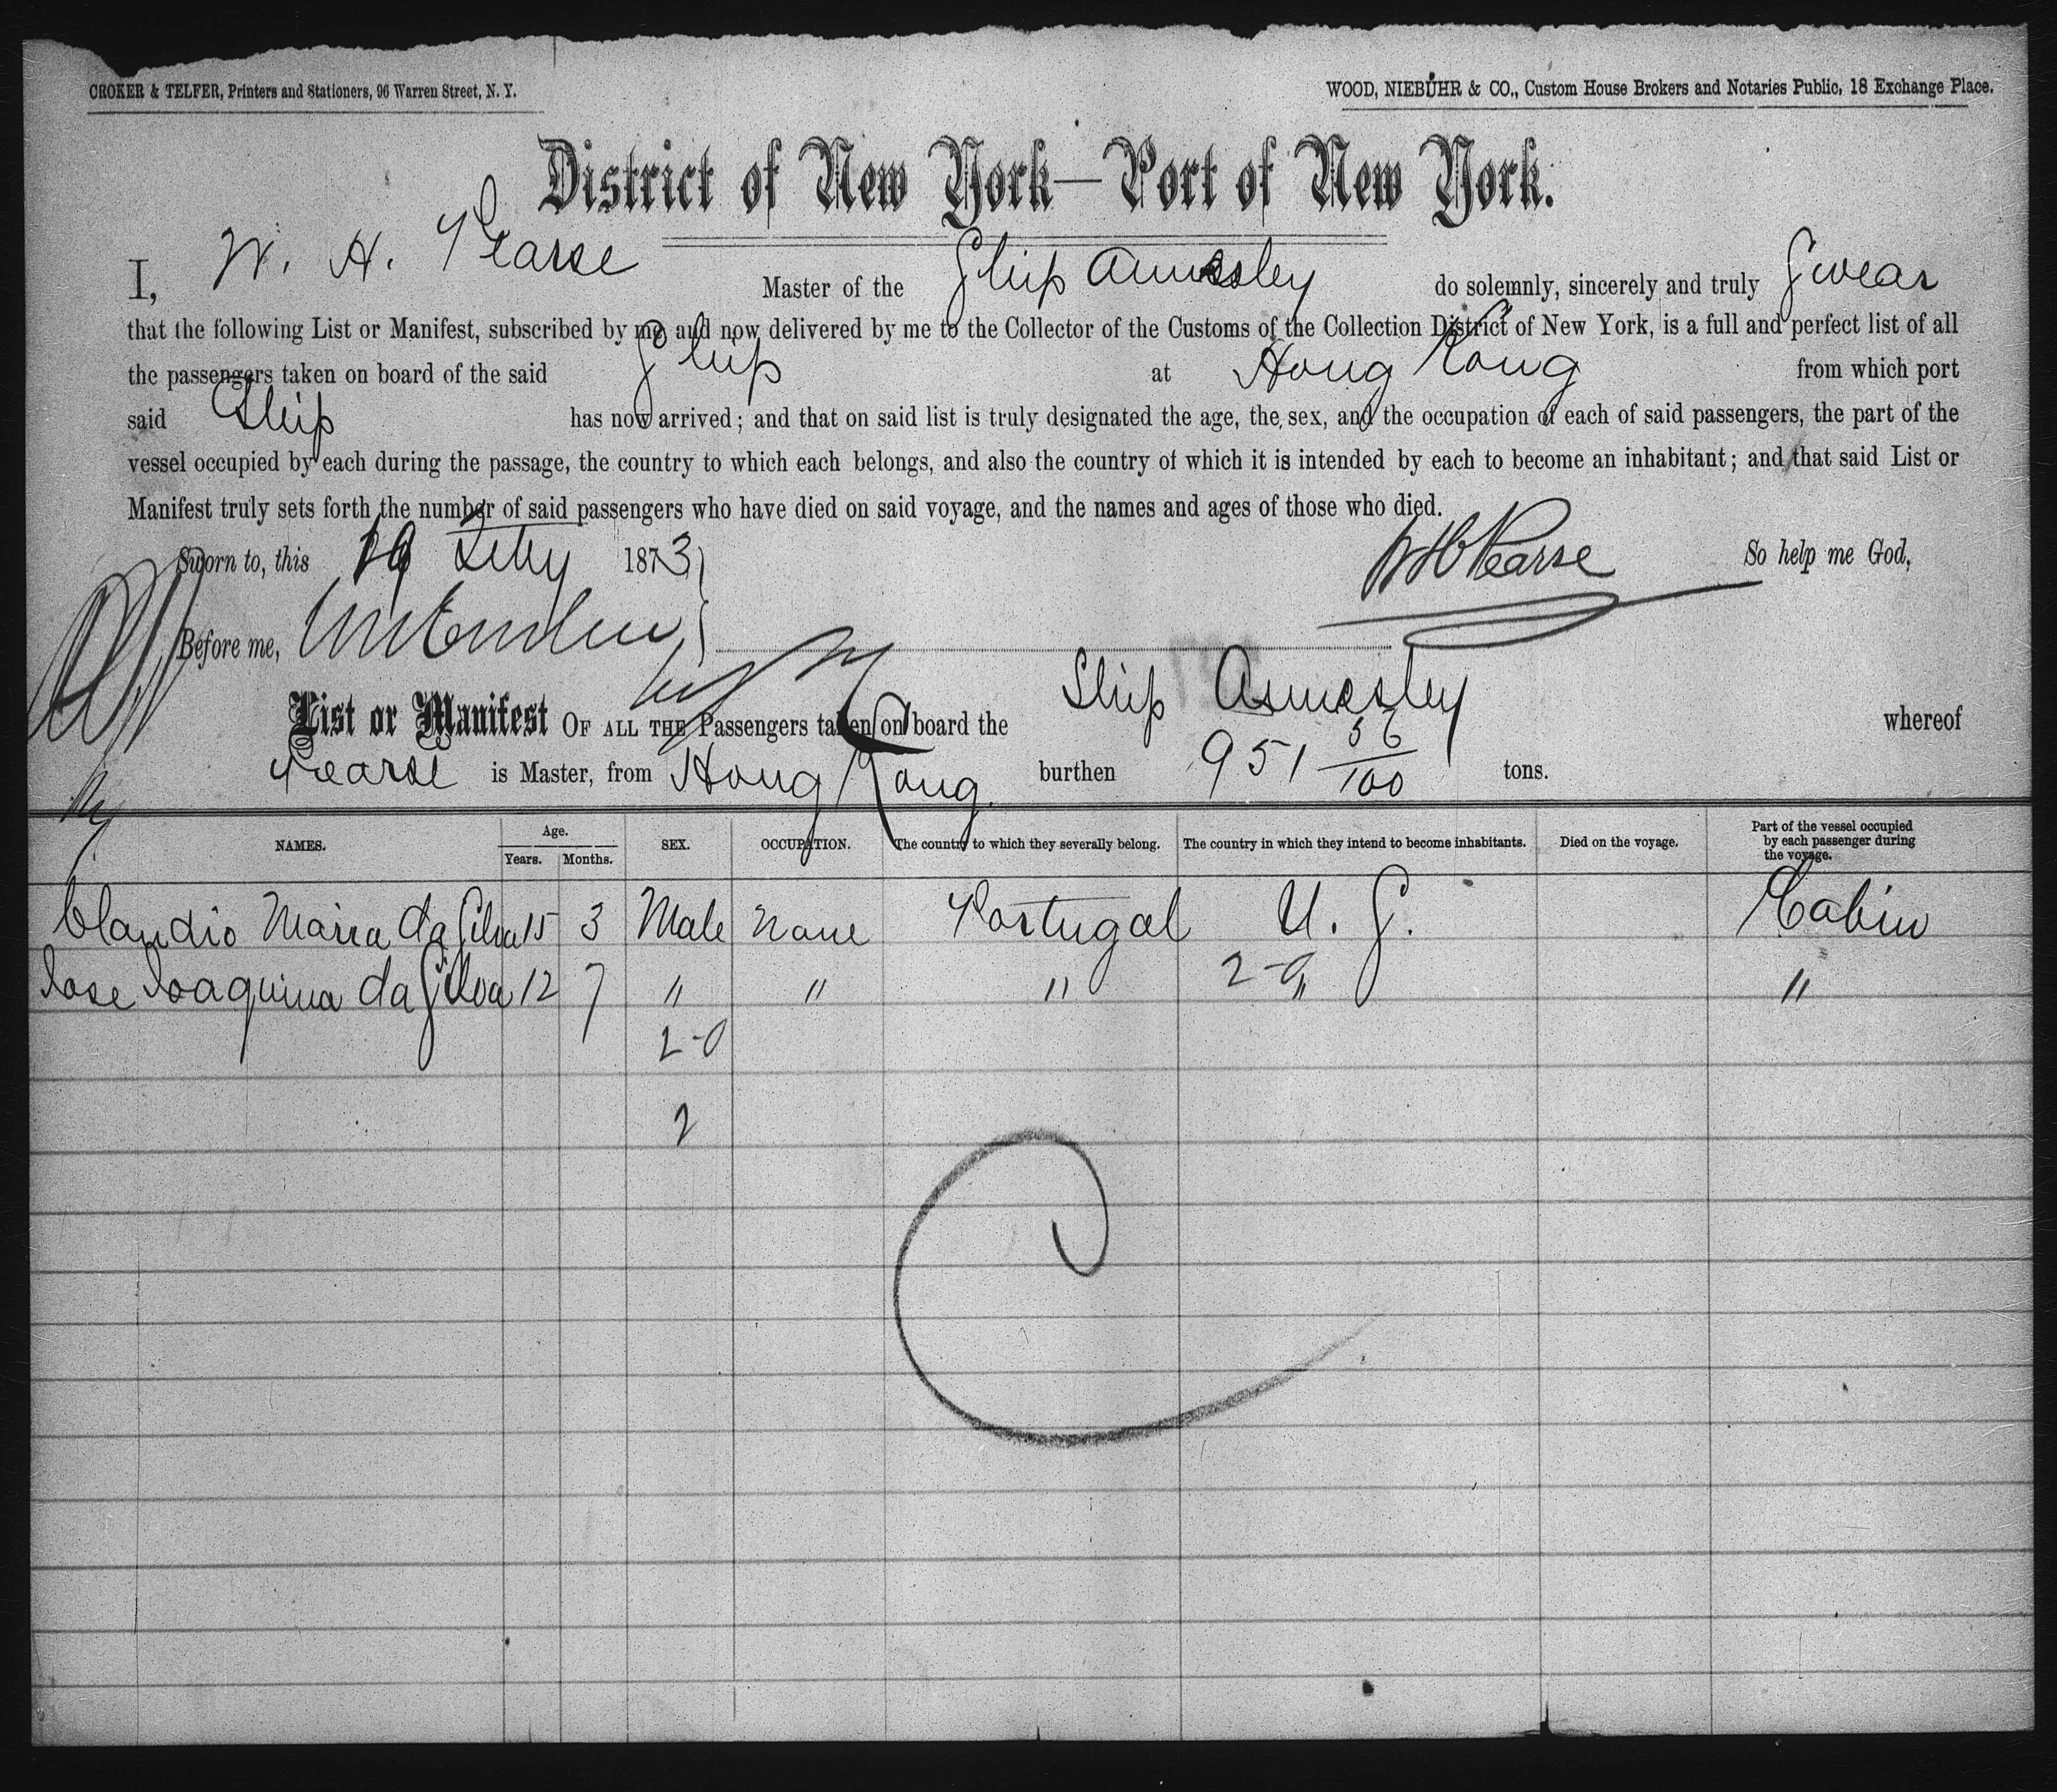 CROKER & TELFER, Printers and Stationers, 96 Warren Street, N. Y.
WOOD, NIEBUHR & CO., Custom House Brokers and Notaries Public, 18 Exchange Place.
District of New York—Port of New York.
I, W. H. Pearse Master of the Ship Annesley do solemnly, sincerely and truly Swear
that the following List or Manifest, subscribed by me and now delivered by me to the Collector of the Customs of the Collection District of New York, is a full and perfect list of all
the passengers taken on board of the said Ship at Hong Kong from which port
said Ship has now arrived; and that on said list is truly designated the age, the sex, and the occupation of each of said passengers, the part of the
vessel occupied by each during the passage, the country to which each belongs, and also the country of which it is intended by each to become an inhabitant; and that said List or
Manifest truly sets forth the number of said passengers who have died on said voyage, and the names and ages of those who died.
Sworn to, this 19 Feby 1873 W H Pearse So help me God,
Before me,
List or Manifest OF ALL THE Passengers taken on board the Ship Annesley whereof
Pearse is Master, from Hong Kong. burthen 951 56/100 tons.
NAMES. Age. Years. Months. SEX. OCCUPATION. The country to which they severally belong. The country in which they intend to become inhabitants. Died on the voyage. Part of the vessel occupied by each passenger during the voyage.
Claudio Maria da Silva 15 3 Male None Portugal U. S. Cabin
Jose Joaquina da Silva 12 7 " " " 2-0 " "
2-0
2